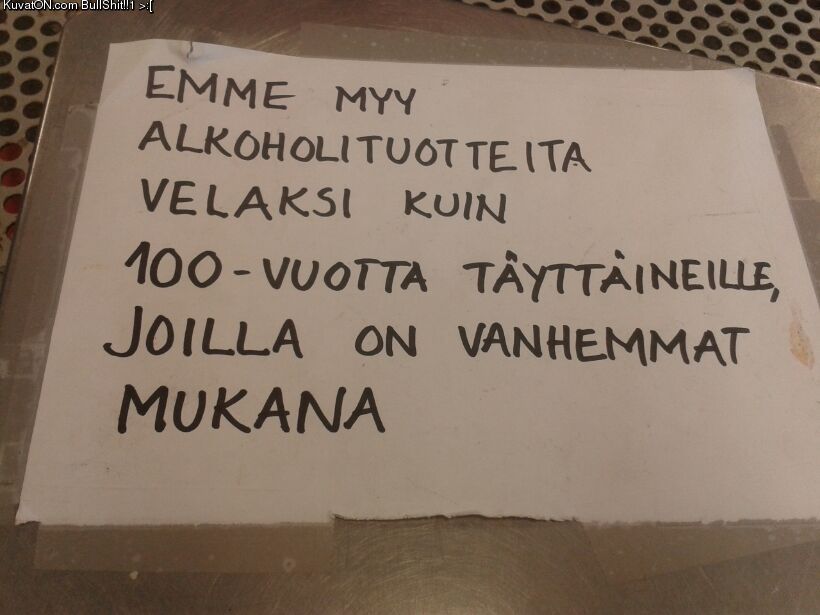 KuvatON.com BullShit!!1 >:[
EMME MYY
ALKOHOLITUOTTEITA
VELAKSI KUIN
100-VUOTTA TÄYTTÄINEILLE,
JOILLA ON VANHEMMAT
MUKANA